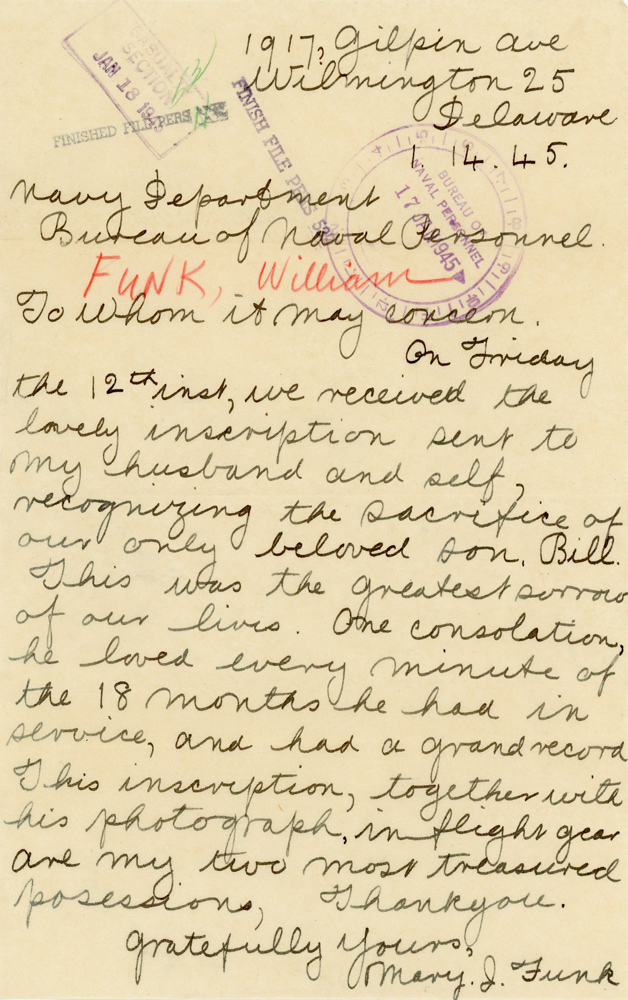 1917, Gilpin Ave
Wilmington 25
Delaware
1. 14. 45.
CASUALTY
SECTION
JAN 18 194
FINISHED FILE PERS
FINISH FILE PERS
BUREAU OF
NAVAL PERSONNEL
17 1945
Navy Department
Bureau of Naval Personnel.
FUNK, William
To Whom it May concern.
On Friday
the 12th inst, we received the
lovely inscription sent to
my husband and self,
recognizing the sacrifice of
our only beloved son, Bill.
This was the greatest sorrow
of our lives. One consolation,
he loved every minute of
the 18 months he had in
service, and had a grand record
This inscription, together with
his photograph, in flight gear
are my two most treasured
posessions, Thankyou.
gratefully yours,
Mary. J. Funk